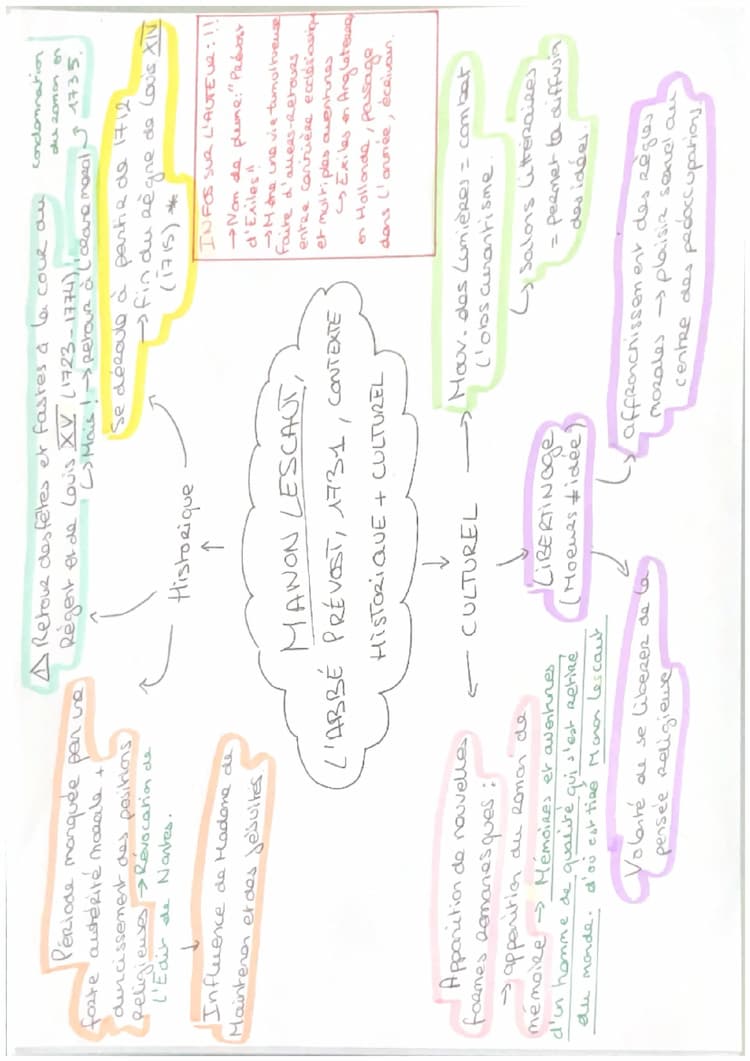 Période marquée par une
forte austérité morale +
durcissement des positions
religieuses → Révocation de
l'Edit de Nantes.
Influence de Madame de
Maintenon et des Jésuites
△ Retour des fêtes et fastes à la cour du
Régent et de Louis XV (1723-1774)
↳ Mais! → retour à l'ordre moral ↴
condamnation
du roman en
1735.
Historique
Se déroule à partir de 1712
→ fin du règne de Louis XIV
(1715) *
INFOS SUR L'AUTEUR : !!
→ Nom de plume: "Prévost
d'Exiles"
→ Mène une vie tumultueuse
faite d'allers-retours
entre carrière ecclésiastique
et multiples aventures
↳ Exiles en Angleterre,
en Hollande, passage
dans l'armée, écrivain.
MANON LESCAUT,
L'ABBÉ PRÉVOST, 1731, CONTEXTE
HISTORIQUE + CULTUREL
← CULTUREL →
Apparition de nouvelles
formes romanesques :
→ apparition du roman de
mémoire → Mémoires et aventures
d'un homme de qualité qui s'est retiré
du monde. d'où est tiré Manon Lescaut
Mouv. des Lumières = combat
l'obscurantisme.
↳ Salons littéraires
= permet la diffusion
des idées.
LIBERTINAGE
(Moeurs ≠ idée)
Volonté de se libérer de la
pensée religieuse
affranchissement des règles
morales → plaisir sexuel au
centre des préoccupations